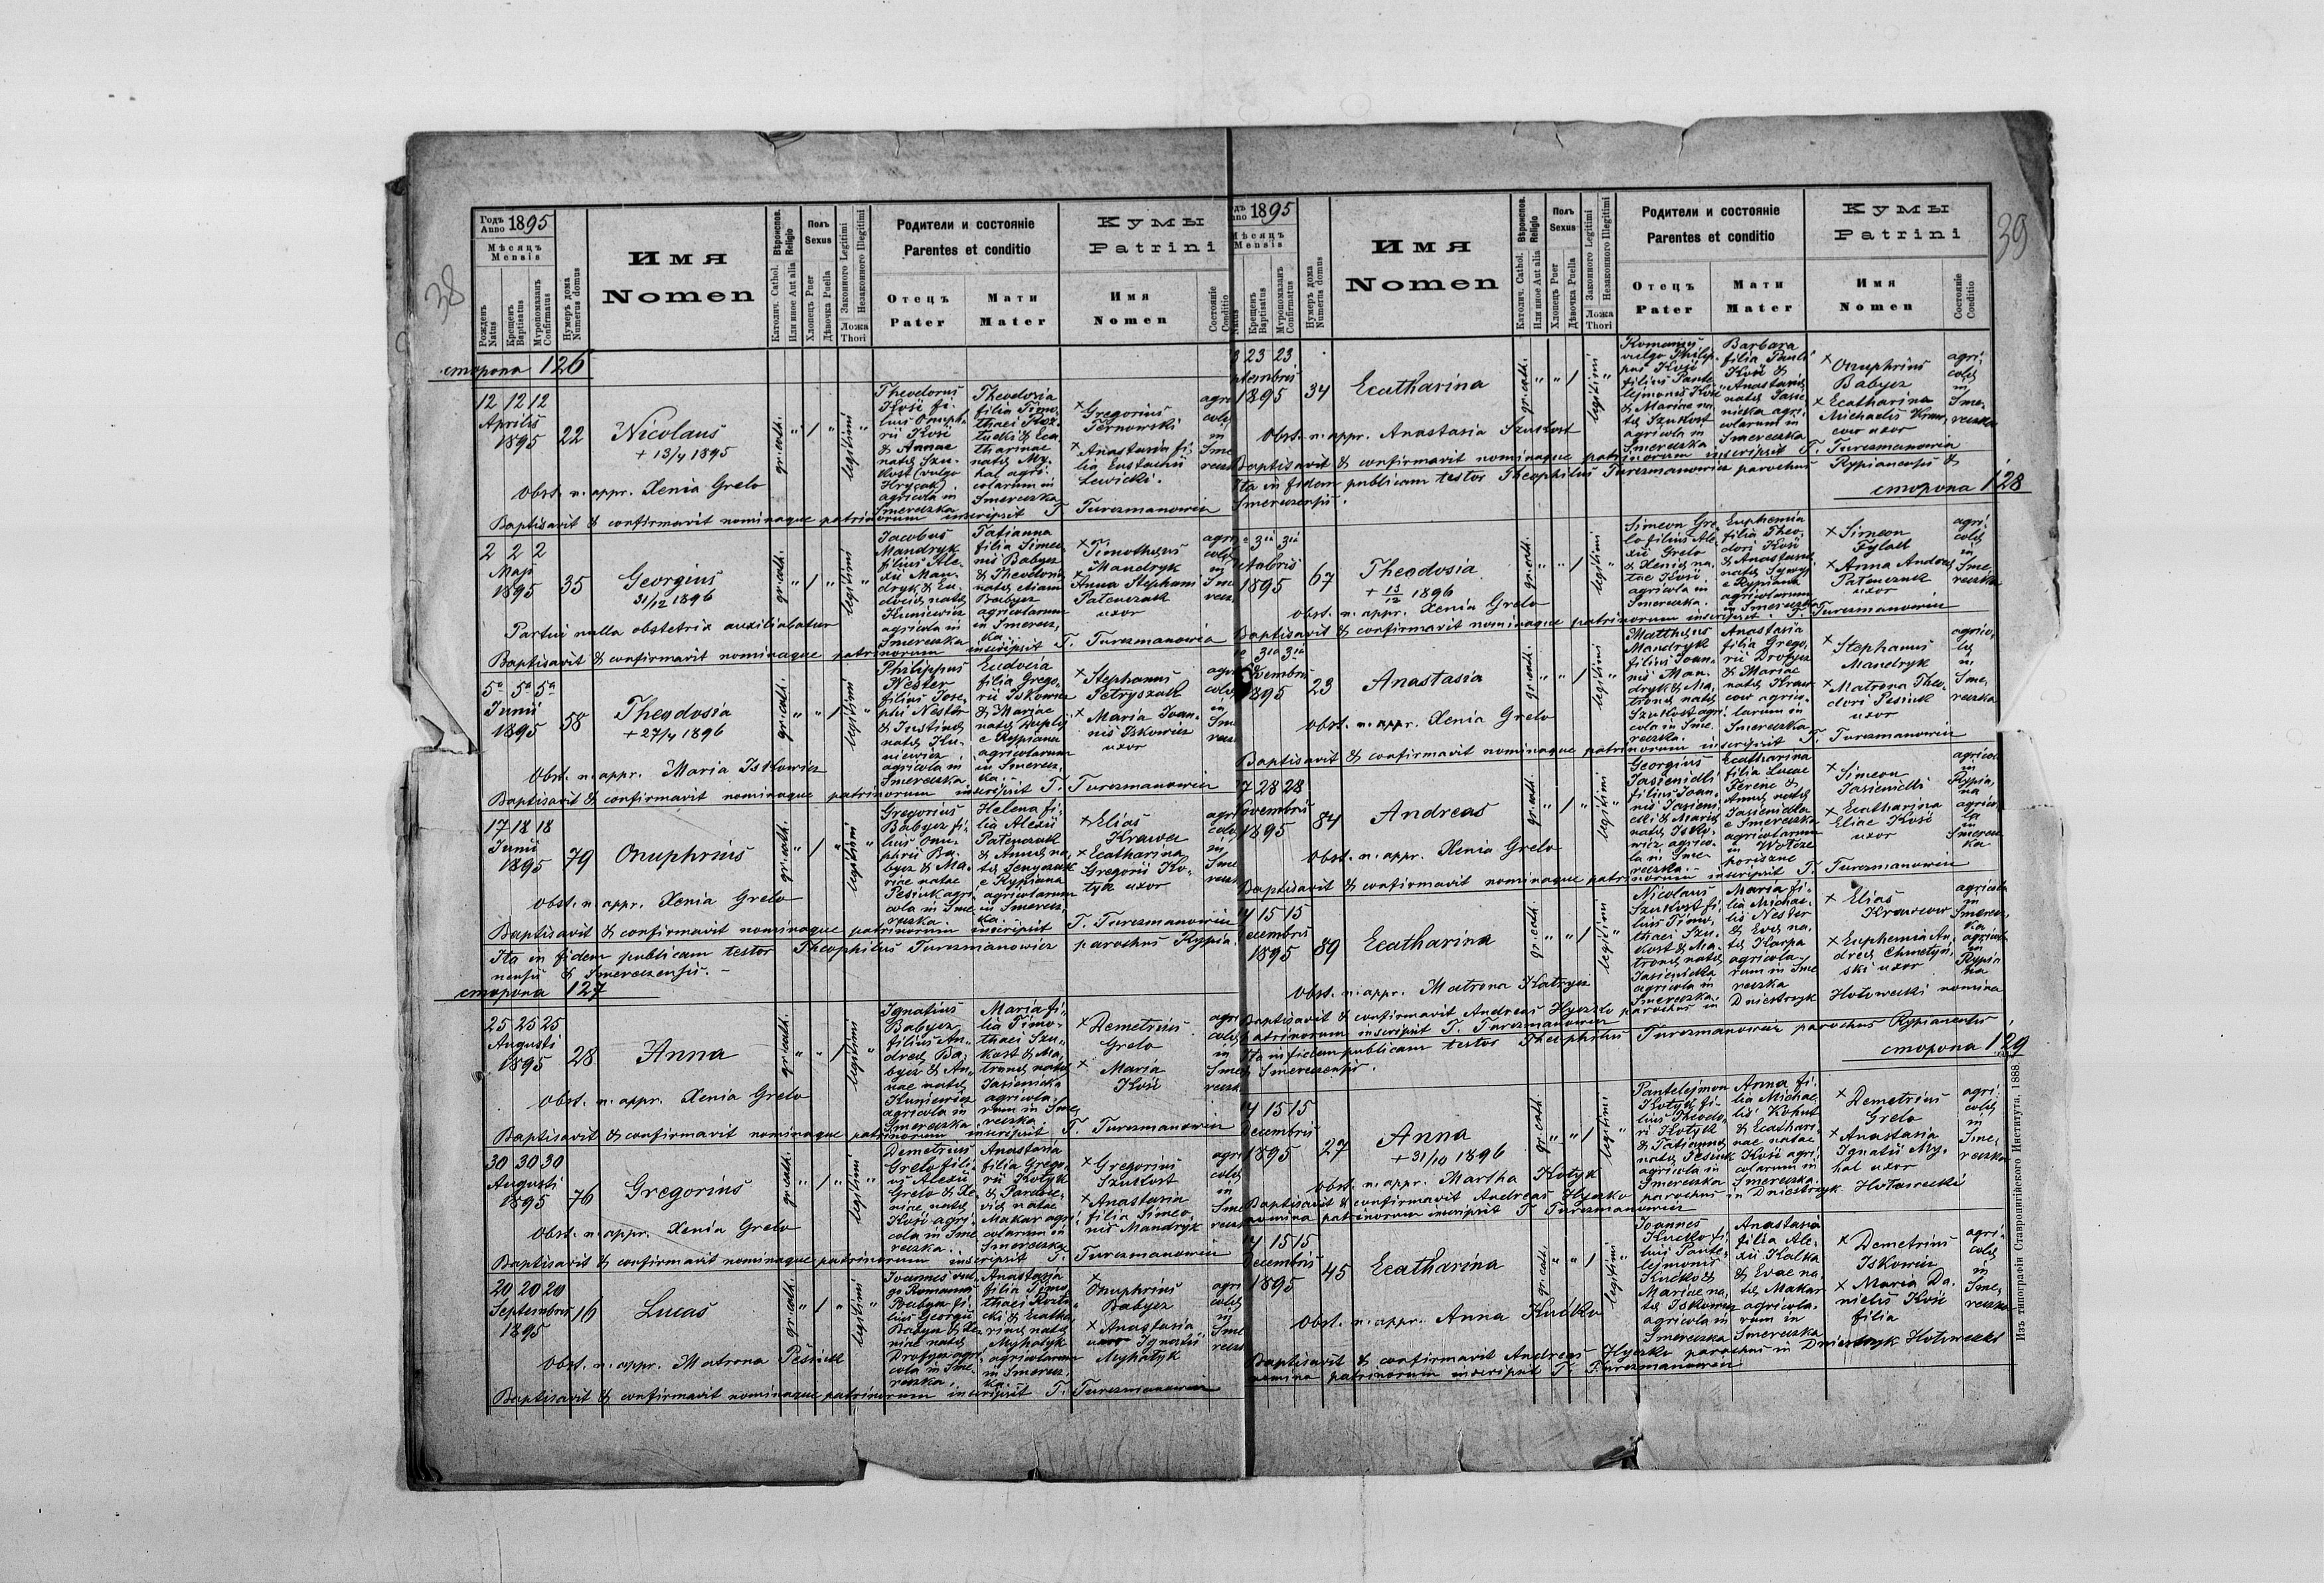 38
Годъ 1895
Anno
Мѣсяць
Mensis
Рожденъ
Natus
Крещенъ
Baptisatus
Мѵропомазанъ
Confirmatus
Нумеръ дома
Numerus domus
Имя
Nomen
Вѣроиспов.
Religio
Католич. Cathol.
Или иное Aut alia
Полъ
Sexus
Хлопецъ Puer
Дѣвочка Puella
Законного Legitimi
Незаконного Illegitimi
Ложа
Thori
Родители и состояніе
Parentes et conditio
Отець
Pater
Мати
Mater
Кумы
Patrini
Имя
Nomen
Состояніе
Conditio
сторона 126
12 12 12
Aprilis
1895
22
Nicolaus
+ 13/4 1895
gr. cath.
" / "
legitimi
"
Theodorus
Kosć fi-
lius Onuph-
rii Kosć
& Annae
natae Szu-
kost (vulgo
Hrycak)
agricola in
Smereczka
Theodosia
filia Timo-
thaei Roz-
lucki & Eca-
tharinae
natae My-
hal agri-
colarum in
Smereczka
× Gregorius
Ternowski
× Anastasia fi-
lia Eustachii
Lewicki.
agri
colae
in
Sme
recz
Obst. n. appr. Xenia Grelo
Baptisavit & confirmavit nominaque patrinorum inscripsit T. Turczmanowicz
2 2 2
Maji
1895
35
Georgius
31/12 1896
gr. cath.
" / "
legitimi
"
Jacobus
Mandryk
filius Ale-
xii Man-
dryk & Eu-
dociae natae
Kuniewicz
agricola in
Smereczka
Tatianna
filia Simeo-
nis Babycz
& Theodorae
natae etiam
Babycz
agricolarum
in Smerecz-
ka.
× Timotheus
Mandryk
× Anna Stephani
Patenczak
uxor
agri
colae
in
Sme
recz
Partui nulla obstetrix auxiliabatur
Baptisavit & confirmavit nominaque patrinorum inscripsit T. Turczmanowicz
5a 5a 5a
Junii
1895
58
Theodosia
+ 27/4 1896
gr. cath.
" " /
legitimi
"
Philippus
Nester
filius Jose-
phi Nester
& Justinae
natae Ku-
niewicz
agricola in
Smereczka
Eudocia
filia Grego-
rii Iskowicz
& Mariae
natae Duplij
e Rypiana
agricolarum
in Smerecz-
ka.
× Stephanus
Petryszak
× Maria Joan-
nis Iskowicz
uxor
agri
colae
in
Sme
recz
Obst. n. appr. Maria Iskowicz
Baptisavit & confirmavit nominaque patrinorum inscripsit T. Turczmanowicz
17 18 18
Junii
1895
79
Onuphrius
gr. cath.
" / "
legitimi
"
Gregorius
Babycz fi-
lius Onu-
phrii Ba-
bycz & Ma-
riae natae
Pesiuk agri-
cola in Sme
reczka.
Helena fi-
lia Alexii
Patenczak
& Annae na-
tae Senyczak
e Rypiana
agricolarum
in Smerecz-
ka.
× Elias
Krawcz
× Ecatharina
Gregorii Ko-
tyk uxor
agri
colae
in
Sme
recz
Obst. n. appr. Xenia Grelo
Baptisavit & confirmavit nominaque patrinorum inscripsit T. Turczmanowicz
Ita in fidem publicam testor Theophilus Turczmanowicz parochus Rypia-
nensis & Smereczensis. -
сторона 127
25 25 25
Augusti
1895
28
Anna
gr. cath.
" " /
legitimi
"
Ignatius
Babycz
filius An-
dreae Ba-
bycz & An-
nae natae
Kuniewicz
agricola in
Smereczka
Maria fi-
lia Timo-
thaei Szu-
kost & Ma-
tronae natae
Jasienicka
agricola-
rum in Sme-
reczka
× Demetrius
Grelo
× Maria
Kosć
agri
colae
in
Sme
reczk
Obst. n. appr. Xenia Grelo
Baptisavit & confirmavit nominaque patrinorum inscripsit T. Turczmanowicz
30 30 30
Augusti
1895
76
Gregorius
gr. cath.
" / "
legitimi
"
Demetrius
Grelo fili-
us Alexii
Grelo & Xe-
niae natae
Kosć agri-
cola in Sme
reczka.
Anastasia
filia Grego-
rii Kotyk
& Parasce-
viae natae
Makar agri-
colarum in
Smereczka
× Gregorius
Szukost
× Anastasia
filia Simeo-
nis Mandryk
agri
colae
in
Sme
recz
Obst. n. appr. Xenia Grelo
Baptisavit & confirmavit nominaque patrinorum inscripsit T. Turczmanowicz
20 20 20
Septembris
1895
16
Lucas
gr. cath.
" / "
legitimi
"
Joannes vul-
go Romanus
Babycz fi-
lius Georgii
Babycz & Xe-
niae natae
Drobycz agri-
cola in Sme-
reczka.
Anastasia
filia Timo-
thaei Rozlu-
cki & Ecatha-
rinae natae
Myhatyk
agricolarum
in Smerecz-
ka.
× Onuphrius
Babycz
× Anastasia
Ignatii
Myhatyk
agri
colae
in
Sme
recz
Obst. n. appr. Matrona Pesiuk
Baptisavit & confirmavit nominaque patrinorum inscripsit T. Turczmanowicz
39
1895
Мѣсяць
Mensis
Natus
Крещенъ
Baptisatus
Мѵропомазанъ
Confirmatus
Нумеръ дома
Numerus domus
Имя
Nomen
Вѣроиспов.
Religio
Католич. Cathol.
Или иное Aut alia
Полъ
Sexus
Хлопецъ Puer
Дѣвочка Puella
Законного Legitimi
Незаконного Illegitimi
Ложа
Thori
Родители и состояніе
Parentes et conditio
Отець
Pater
Мати
Mater
Кумы
Patrini
Имя
Nomen
Состояніе
Conditio
3 23 23
ptembris
1895
34
Ecatharina
gr. cath.
" " /
legitimi
"
Romanus
vulgo Philip-
pus Kosć
filius Pante-
lejmonis Kosć
& Mariae na-
tae Szukost
agricola in
Smereczka
Barbara
filia Pauli
Kosć &
Anastasiae
natae Jasie-
nicka agri-
colarum in
Smereczka
× Onuphrius
Babycz
× Ecatharina
Michaelis Kraw-
cow uxor
agri-
colae
in
Sme-
reczka
Obst. n. appr. Anastasia Szukost
Baptisavit & confirmavit nominaque patrinorum inscripsit T. Turczmanowicz
Ita in fidem publicam testor Theophilus Turczmanowicz parochus Rypianensis &
Smereczensis.
сторона 128
3ia 3ia
ctobris
1895
67
Theodosia
+ 13/12 1896
gr. cath.
" " /
legitimi
"
Simeon Gre-
lo filius Ale-
xii Grelo
& Xeniae na-
tae Kosć
agricola in
Smereczka.
Euphemia
filia Theo-
dori Kosć
& Anastasiae
natae
e Rypiana
agricolarum
in Smereczka
× Simeon
Fylak
× Anna Andreae
Patenczak
uxor
agri-
colae
in
Sme-
reczka
obst. n. appr. Xenia Grelo
Baptisavit & confirmavit nominaque patrinorum inscripsit T. Turczmanowicz
3ia 3ia
ovembris
1895
23
Anastasia
gr. cath.
" " /
legitimi
"
Matthaeus
Mandryk
filius Joan-
nis Man-
dryk & Ma-
tronae natae
Szukost agri-
cola in Sme-
reczka.
Anastasia
filia Grego-
rii Drobycz
& Mariae
natae Kraw-
cow agrico-
larum in
Smereczka
× Stephanus
Mandryk
× Matrona Theo-
dori Pesiuk
uxor
agrico-
lae
in
Sme-
reczka
Obst. n. appr. Xenia Grelo
Baptisavit & confirmavit nominaque patrinorum inscripsit T. Turczmanowicz
7 28 28
ovembris
1895
84
Andreas
gr. cath.
" / "
legitimi
"
Georgius
Jasienicki
filius Joan-
nis Jasieni-
cki & Mariae
natae Isko-
wicz agrico-
la in Sme-
reczka.
Ecatharina
filia Lucae
Ferenc &
Annae natae
Jasienicka
agricolarum
in Wołcze
horiszne
× Simeon
Jasienicki
× Ecatharina
Eliae Kosć
uxor
agricola
in
Rypia-
na
agrico-
la
in
Smerecz
ka
Obst. n. appr. Xenia Grelo
Baptisavit & confirmavit nominaque patrinorum inscripsit T. Turczmanowicz
4 15 15
ecembris
1895
89
Ecatharina
gr. cath.
" " /
legitimi
"
Nicolaus
Szukost fi-
lius Timo-
thaei Szu-
kost & Ma-
tronae natae
Jasienicka
agricola in
Smereczka.
Maria fi-
lia Michae-
lis Nester
& Evae na-
tae Karpa
agricola-
rum in Sme
reczka
× Elias
Krawcow
× Euphemia An-
dreae Chmelyn-
ski uxor
agricola
in
Smerecz-
ka
agricola
in
Rypia
na
Obst. n. appr. Matrona Katrycz
Baptisavit & confirmavit Andreas Hyczko parochus in Dniestrzyk Hołowecki nomina
patrinorum inscripsit T. Turczmanowicz
Ita in fidem publicam testor Theophilus Turczmanowicz parochus Rypianensis
& Smereczensis.
сторона 129
4 15 15
ecembris
1895
27
Anna
+ 31/10 1896
gr. cath.
" " /
legitimi
"
Pantelejmon
Kotyk fi-
lius Theodo-
ri Kotyk
& Tatiannae
natae Pesiuk
agricola in
Smereczka
Anna fi-
lia Michae-
lis Kohut
& Ecathari-
nae natae
Kosć agri-
colarum in
Smereczka.
× Demetrius
Grelo
× Anastasia
Ignatii My-
hal uxor
agri-
colae
in
Sme-
reczka
obst. n. appr. Martha Kotyk
Baptisavit & confirmavit Andreas Hyczko parochus in Dniestrzyk Hołowecki
nomina patrinorum inscripsit T. Turczmanowicz
4 15 15
ecembris
1895
45
Ecatharina
gr. cath.
" " /
legitimi
"
Joannes
Kućko fi-
lius Pante-
lejmonis
Kućko &
Mariae na-
tae Iskowicz
agricola in
Smereczka
Anastasia
filia Ale-
xii Kalka
& Evae na-
tae Makar
agricola-
rum in
Smereczka
× Demetrius
Iskowicz
× Maria Da-
nielis Kosć
filia
agri-
colae
in
Sme-
reczka
Obst. n. appr. Anna Kućko
Baptisavit & confirmavit Andreas Hyczko parochus in Dniestrzyk Hołowecki
nomina patrinorum inscripsit T. Turczmanowicz
Изъ типографіи Ставропигійского Института. 1888.